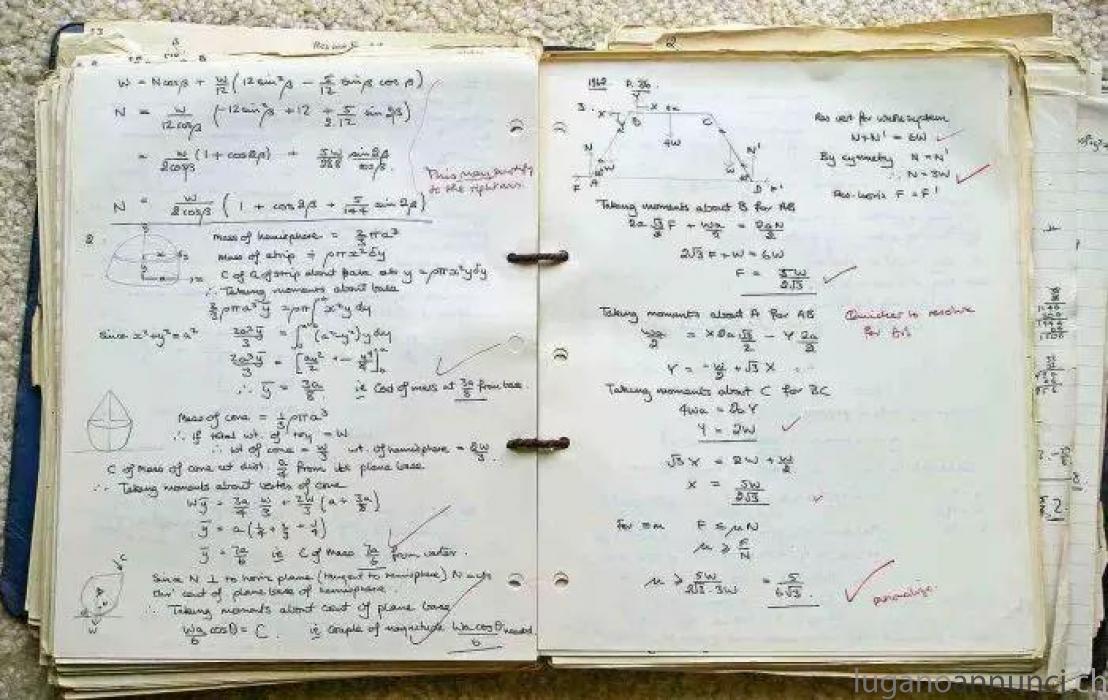 W = N cos β + W/12 (12 sin²β − 5/12 sin β cos β)
N = W/12cosβ (−12 sin²β + 12 + 5/2.12 sin 2β)
= W/2cosβ (1 + cos 2β) + 5W/288 sin 2β/cos β.
This may
to the right ans
N = W/2cosβ (1 + cos 2β + 5/144 sin 2β)
2.
Mass of hemisphere = 2/3 ρπa³
Mass of strip = ρπx²δy
C of G of strip about base ab y = ρπx²yδy
∴ Taking moments about base
2/3 ρπa³ȳ = ρπ∫x²y dy
Since x²+y²=a² 2a³ȳ/3 = ∫(a²−y²)y dy
∴ ȳ = 3a/8 ie C of mass at 3a/8 from base.
Mass of cone = 1/3 ρπa³
∴ if total wt. of toy = W
∴ wt of cone = W/3 wt. of hemisphere = 2W/3.
C of Mass of cone at dist. a/4 from its plane base
∴ Taking moments about vertex of cone
Wȳ = 3a/4 W/3 + 2W/3 (a + 3a/8)
ȳ = a(1/4 + 2/3 + 1/4)
ȳ = 7a/6 ie C of Mass 7a/6 from vertex.
Since N ⊥ to horiz plane (tangent to hemisphere) N acts
thr' cent of plane base of hemisphere.
∴ Taking moments about cent of plane base
Wa/6 cos θ = C. ie couple of magnitude Wa cos θ/6 needed
1968
3.
Res vert for whole system
N+N' = 6W
By symmetry N = N'
∴ N = 3W
Res. horiz F = F'
Taking moments about B for AB
2a√3/2 F + Wa/2 = 2aN/2
2√3 F + W = 6W
F = 5W/2√3
Taking moments about A for AB
Quicker to resolve
for
Wa/2 = X 2a √3/2 − Y 2a/2
Y = −W/2 + √3 X
Taking moments about C for BC
4Wa = 2bY
Y = 2W
√3 X = 2W + W/2
X = 5W/2√3
for F ≤ μN
μ ≥ F/N
μ ≥ 5W/2√3.3W = 5/6√3
lugano annunci.ch